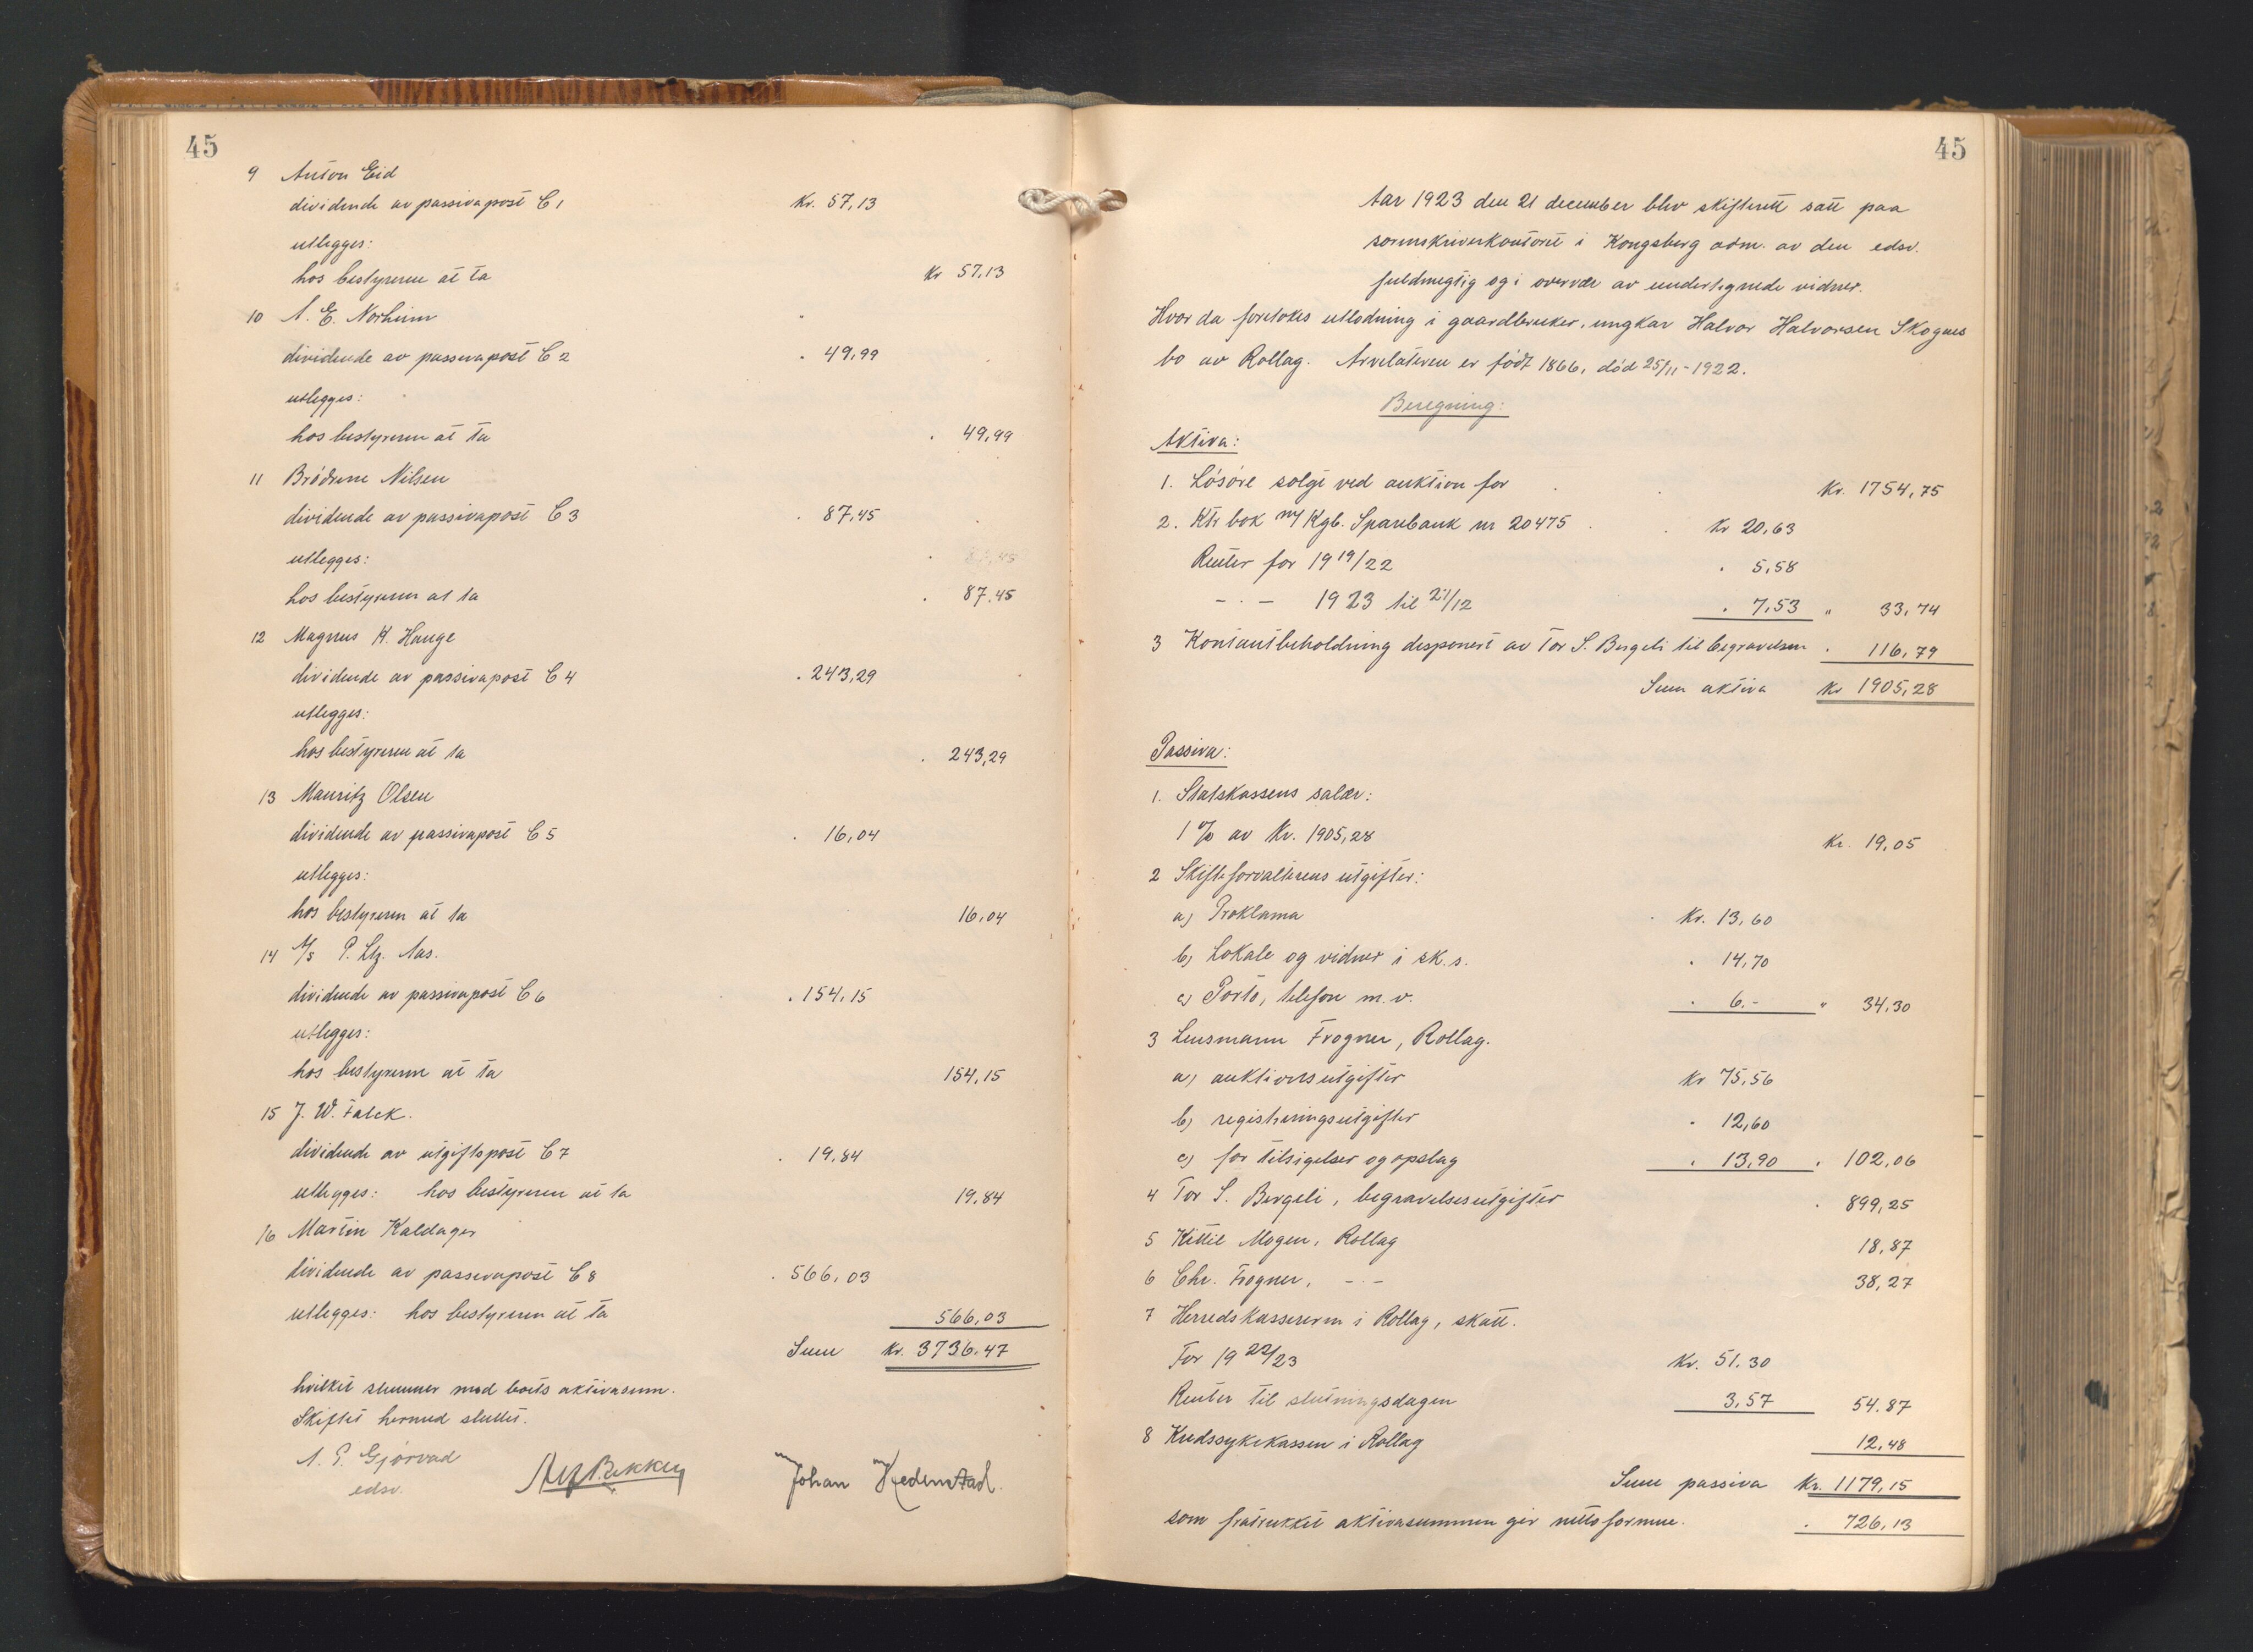 45
9 Anton Eid
dividende av passivapost C 1 Kr. 57,13
utlegges:
hos bestyreren at ta Kr 57,13
10 A. E. Norheim
dividende av passivapost C 2 . 49,99
utlegges:
hos bestyreren at ta . 49,99
11 Brödrene Nilsen
dividende av passivapost C 3 . 87,45
utlegges: . 87,45
hos bestyreren at ta . 87,45
12 Magnus K. Hauge
dividende av passivapost C 4 . 243,29
utlegges:
hos bestyreren at ta . 243,29
13 Mauritz Olsen
dividende av passivapost C 5 . 16,04
utlegges:
hos bestyreren at ta 16,04
14 A/s P. Ltz. Aas.
dividende av passivapost C 6 . 154,15
utlegges:
hos bestyreren at ta 154,15
15 J. W. Falck.
dividende av utgiftspost C 7 . 19,84
utlegges: hos bestyreren at ta 19,84
16 Martin Kaldager
dividende av passivapost C 8 . 566,03
utlegges: hos bestyreren at ta 566,03
Sum Kr. 3736,47
hvilket stemmer med boets aktivasum.
Skiftet hermed sluttet.
A. P. Gjörvad Alf Bekken Johan Hedenstad.
edsv.
45
Aar 1923 den 21 december blev skifterett satt paa
sorenskriverkontoret i Kongsberg adm. av den edsv.
fuldmegtig og i overvær av undertegnede vidner.
Hvor da foretokes utlodning i gaardbruker, ungkar Halvor Halvorsen Skognes
bo av Rollag. Arvelateren er född 1866, död 25/11-1922.
Beregning:
Aktiva:
1. Lösöre solgt ved auktion for Kr. 1754,75
2. Ktr bok m/ Kgb. Sparebank nr 20475 Kr 20,63
Renter for 1919/22 . 5,58
- . - 1923 til 21/12 . 7,53 " 33,74
3 Kontantbeholdning desponert av Tor S. Bergeli til begravelsen . 116,79
Sum aktiva Kr 1905,28
Passiva:
1. Statskassens salær:
1 % av Kr. 1905,28 Kr. 19,05
2 Skifteforvalterens utgifter:
a) Proklama Kr. 13,60
b) Lokale og vidner i sk. s. . 14,70
c) Porto, telefon m. v. . 6.- " 34,30
3 Lensmann Frogner, Rollag.
a) auktionsutgifter Kr 75,56
b) registreringsutgifter . 12,60
c) for tilsigelser og opslag . 13,90 . 102,06
4 Tor S. Bergeli, begravelsesutgifter . 899,25
5 Kittil Mogen, Rollag 18,87
6 Chr. Frogner, - . - 38,27
7 Herredskassereren i Rollag, skatt.
For 1922/23 Kr. 51.30
Renter til slutningsdagen 3,57 54.87
8 Kredssykekassen i Rollag 12,48
Sum passiva Kr. 1179,15
som fratrukket aktivasummen gir nettoformue. . 726,13